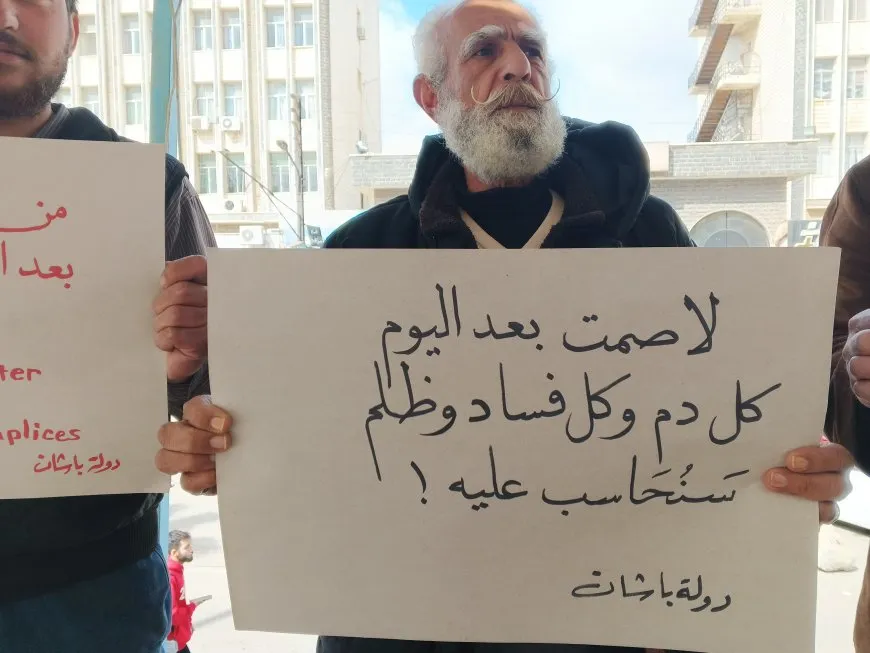 من
بعد ا
ter
plices
دولة باشان
لا صمت بعد اليوم
كل دم وكل فساد وظلم
سَنُحَاسب عليه !
دولة باشان